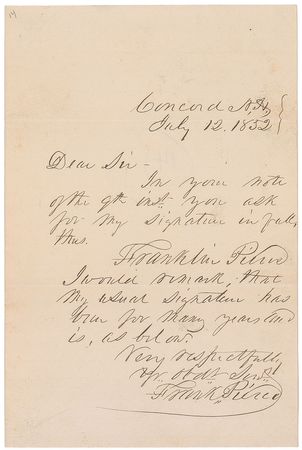 14
Concord N.H.
July 12. 1852
Dear Sir -
In your note
of the 9th inst. you ask
for my signature in full,
thus.
Franklin Pierce
I would remark, that
my usual signature has
been for many years and
is, as below.
Very respectfully,
Yr. obdt. Servt.
Frank. Pierce